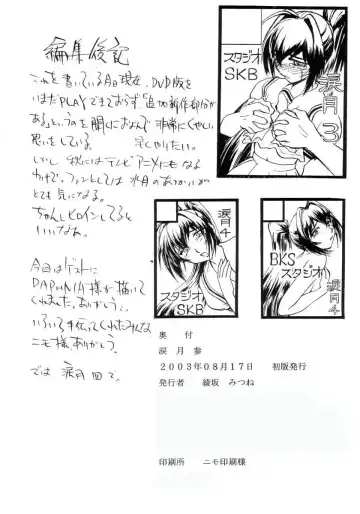 編集後記
これを書いている今日現在、DVD版を
いまだPLAYできておらず「追加新作部分が
ある」というのを聞くにおよんで非常にくやしい
思いをしている。 早くやりたい。
しかし秋にはテレビアニメにもなる
わけで、ファンとしては水月のあつかいが
とても気になる。
ちゃんとヒロインしてると
いいなぁ。
今回はゲストに
DAPHNIA様が描いて
くれました。ありがとう。
いろいろ手伝ってくれたみんな
ニモ様ありがとう。
では 涙月 四 で。
スタジオ
SKB
涙月3
涙月4
スタジオ
SKB
BKS
スタジオ
涙月4
奥 付
涙 月 参
2003年08月17日 初版発行
発行者 綾坂 みつね
印刷所 ニモ印刷様